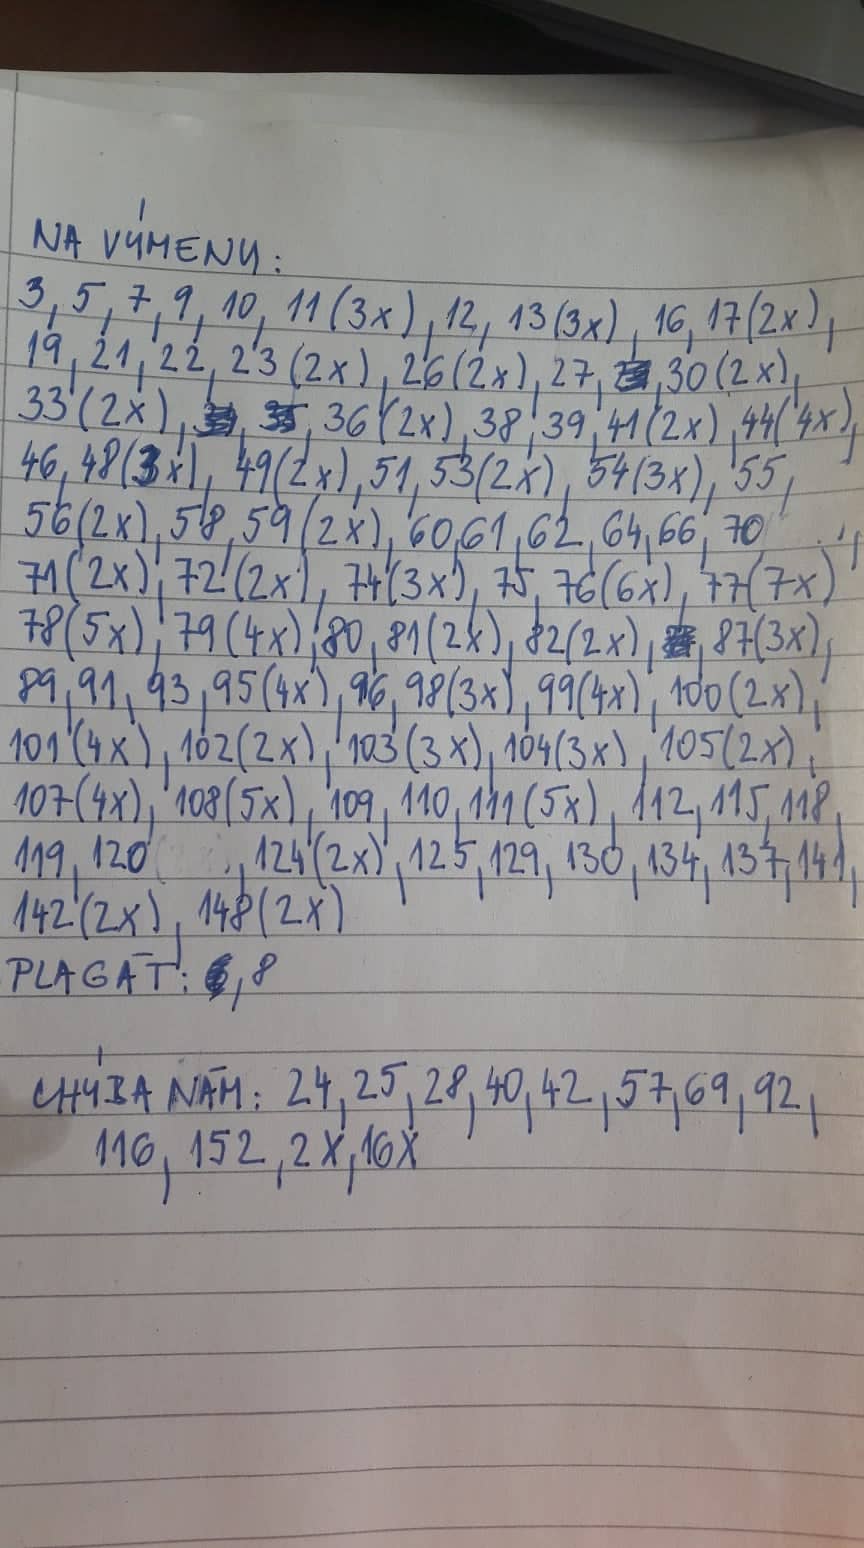 NA VÝMENU:
3, 5, 7, 9, 10, 11(3x), 12, 13(3x), 16, 17(2x),
19, 21, 22, 23(2x), 26(2x), 27, , 30(2x),
33(2x), , , 36(2x), 38, 39, 41(2x), 44(4x),
46, 48(3x), 49(2x), 51, 53(2x), 54(3x), 55,
56(2x), 58, 59(2x), 60, 61, 62, 64, 66, 70 ,
71(2x), 72(2x), 74(3x), 75, 76(6x), 77(7x)
78(5x), 79(4x), 80, 81(2x), 82(2x), , 87(3x),
89, 91, 93, 95(4x), 96, 98(3x), 99(4x), 100(2x),
101(4x), 102(2x), 103(3x), 104(3x), 105(2x),
107(4x), 108(5x), 109, 110, 111(5x), 112, 115, 118,
119, 120 , 124(2x), 125, 129, 130, 134, 137, 141,
142(2x), 148(2x)
PLAGÁT: , 8
CHÝBA NÁM: 24, 25, 28, 40, 42, 57, 69, 92,
116, 152, 2X, 16X